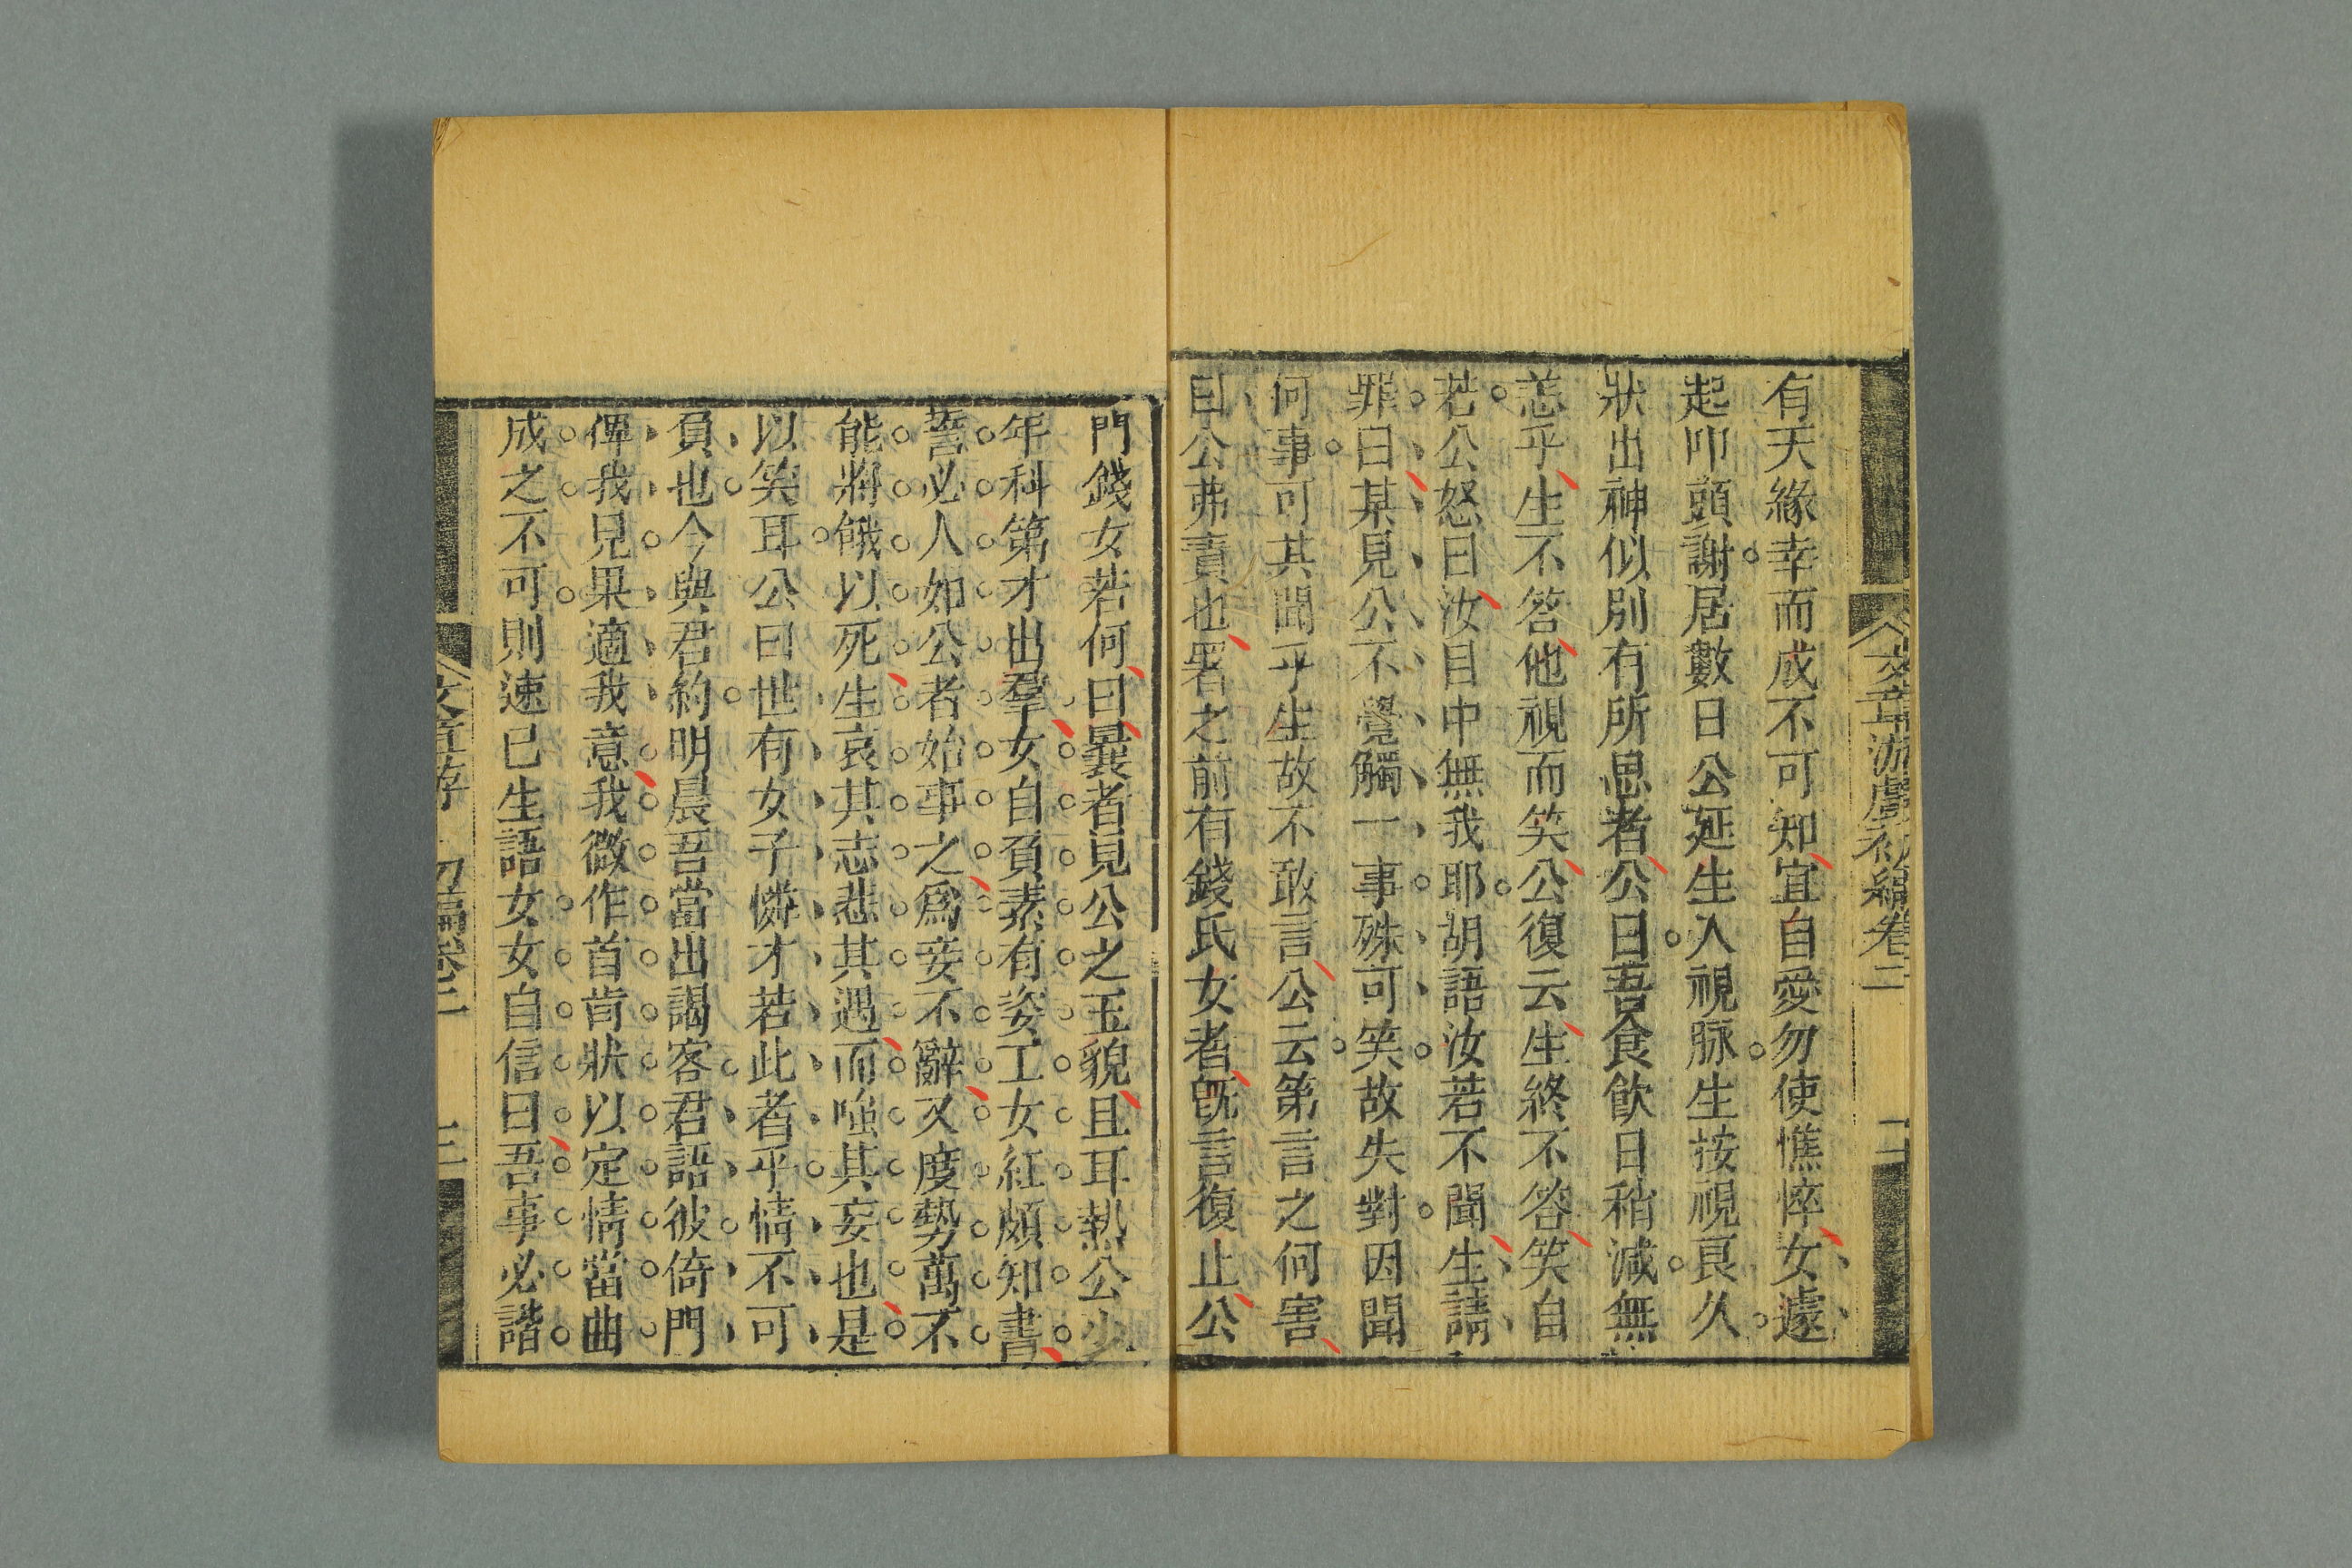 文章游戲初編卷二
二
有天緣幸而成不可知宜自愛勿使憔悴女遽
起叩頭謝居數日公延生入視脉生按視良久
狀出神似別有所思者公曰吾食飲日稍減無
恙乎生不答他視而笑公復云生終不答笑自
若公怒曰汝目中無我耶胡語汝若不聞生請
罪曰某見公不覺觸一事殊可笑故失對因聞
何事可其聞乎生故不敢言公云第言之何害
曰公弗責也署之前有錢氏女者旣言復止公
門錢女若何曰曩者見公之玉貌且耳熱公少
年科第才出羣女自負素有姿工女紅頗知書
誓必人如公者始事之爲妾不辭又度勢萬不
能將餓以死生哀其志悲其遇而嗤其妄也是
以笑耳公曰世有女子憐才若此者乎情不可
負也今與君約明晨吾當出謁客君語彼倚門
俾我見果適我意我微作首肯狀以定情當曲
成之不可則速已生語女女自信曰吾事必諧
文章游 初編卷二
三